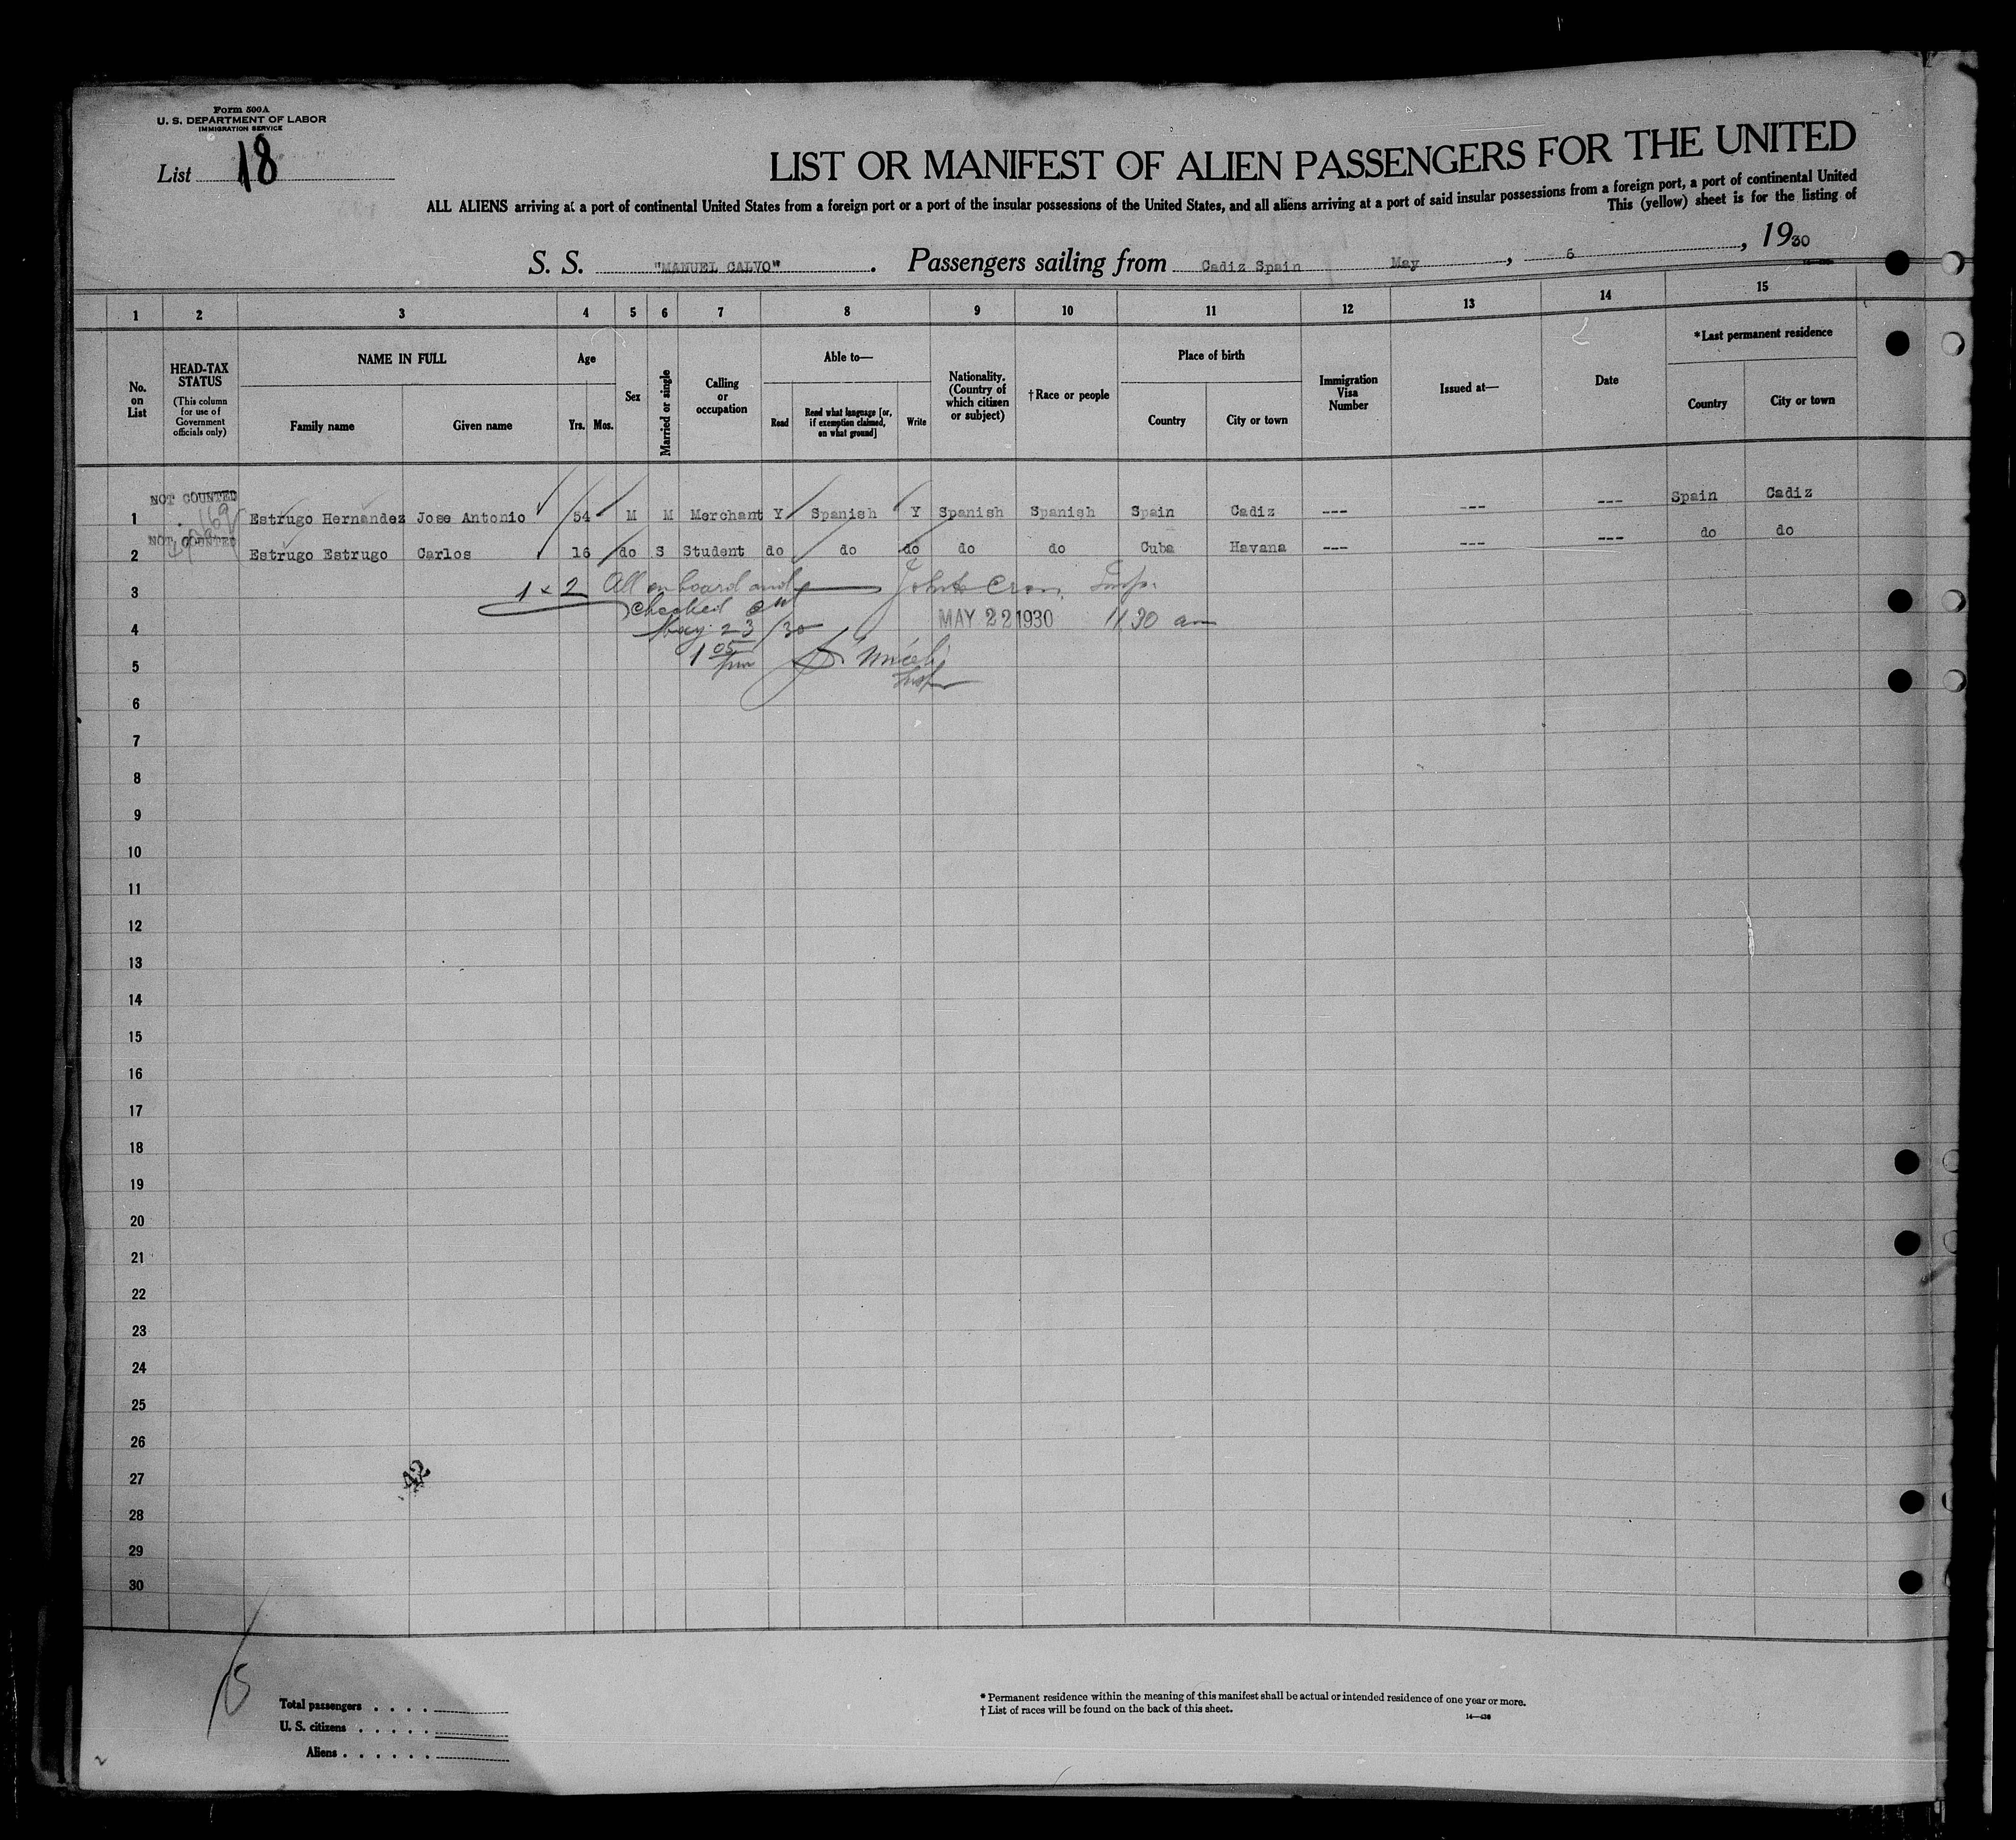 Form 500A
U. S. DEPARTMENT OF LABOR
IMMIGRATION SERVICE
List 18
LIST OR MANIFEST OF ALIEN PASSENGERS FOR THE UNITED
ALL ALIENS arriving at a port of continental United States from a foreign port or a port of the insular possessions of the United States, and all aliens arriving at a port of said insular possessions from a foreign port, a port of continental United
This (yellow) sheet is for the listing of
S. S. "MANUEL CALVO". Passengers sailing from Cadiz Spain May, 6, 1930
1 2 3 4 5 6 7 8 9 10 11 12 13 14 15
No. on List
HEAD-TAX STATUS
(This column for use of Government officials only)
NAME IN FULL
Family name Given name
Age
Yrs. Mos.
Sex
Married or single
Calling or occupation
Able to—
Read
Read what language [or, if exemption claimed, on what ground]
Write
Nationality. (Country of which citizen or subject)
†Race or people
Place of birth
Country City or town
Immigration Visa Number
Issued at—
Date
*Last permanent residence
Country City or town
NOT COUNTED
1 Estrugo Hernandez Jose Antonio 54 M M Merchant Y Spanish Y Spanish Spanish Spain Cadiz --- --- --- Spain Cadiz
NOT COUNTED
2 Estrugo Estrugo Carlos 16 do S Student do do do do do Cuba Havana --- --- --- do do
3 1 x 2 All on board and
checked out
4 May 23/30 MAY 22 1930 11 30 am
5 1 05 pm
Insp
6
7
8
9
10
11
12
13
14
15
16
17
18
19
20
21
22
23
24
25
26
27
42
28
29
30
Total passengers . . . .
U. S. citizens . . . . .
Aliens . . . . . .
* Permanent residence within the meaning of this manifest shall be actual or intended residence of one year or more.
† List of races will be found on the back of this sheet.
14—436